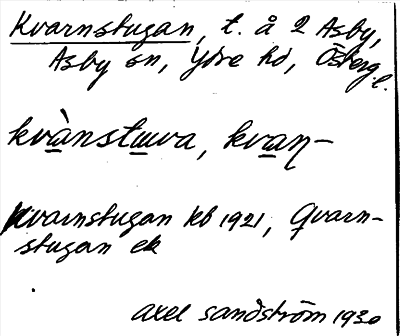 Kvarnstugan, t. å 2 Asby,
Asby sn, Ydre hd, Östergl.
kvànstuva, kvaṇ-
Kvarnstugan kb 1921, Qvarn-
stugan ek
Axel Sandström 1930